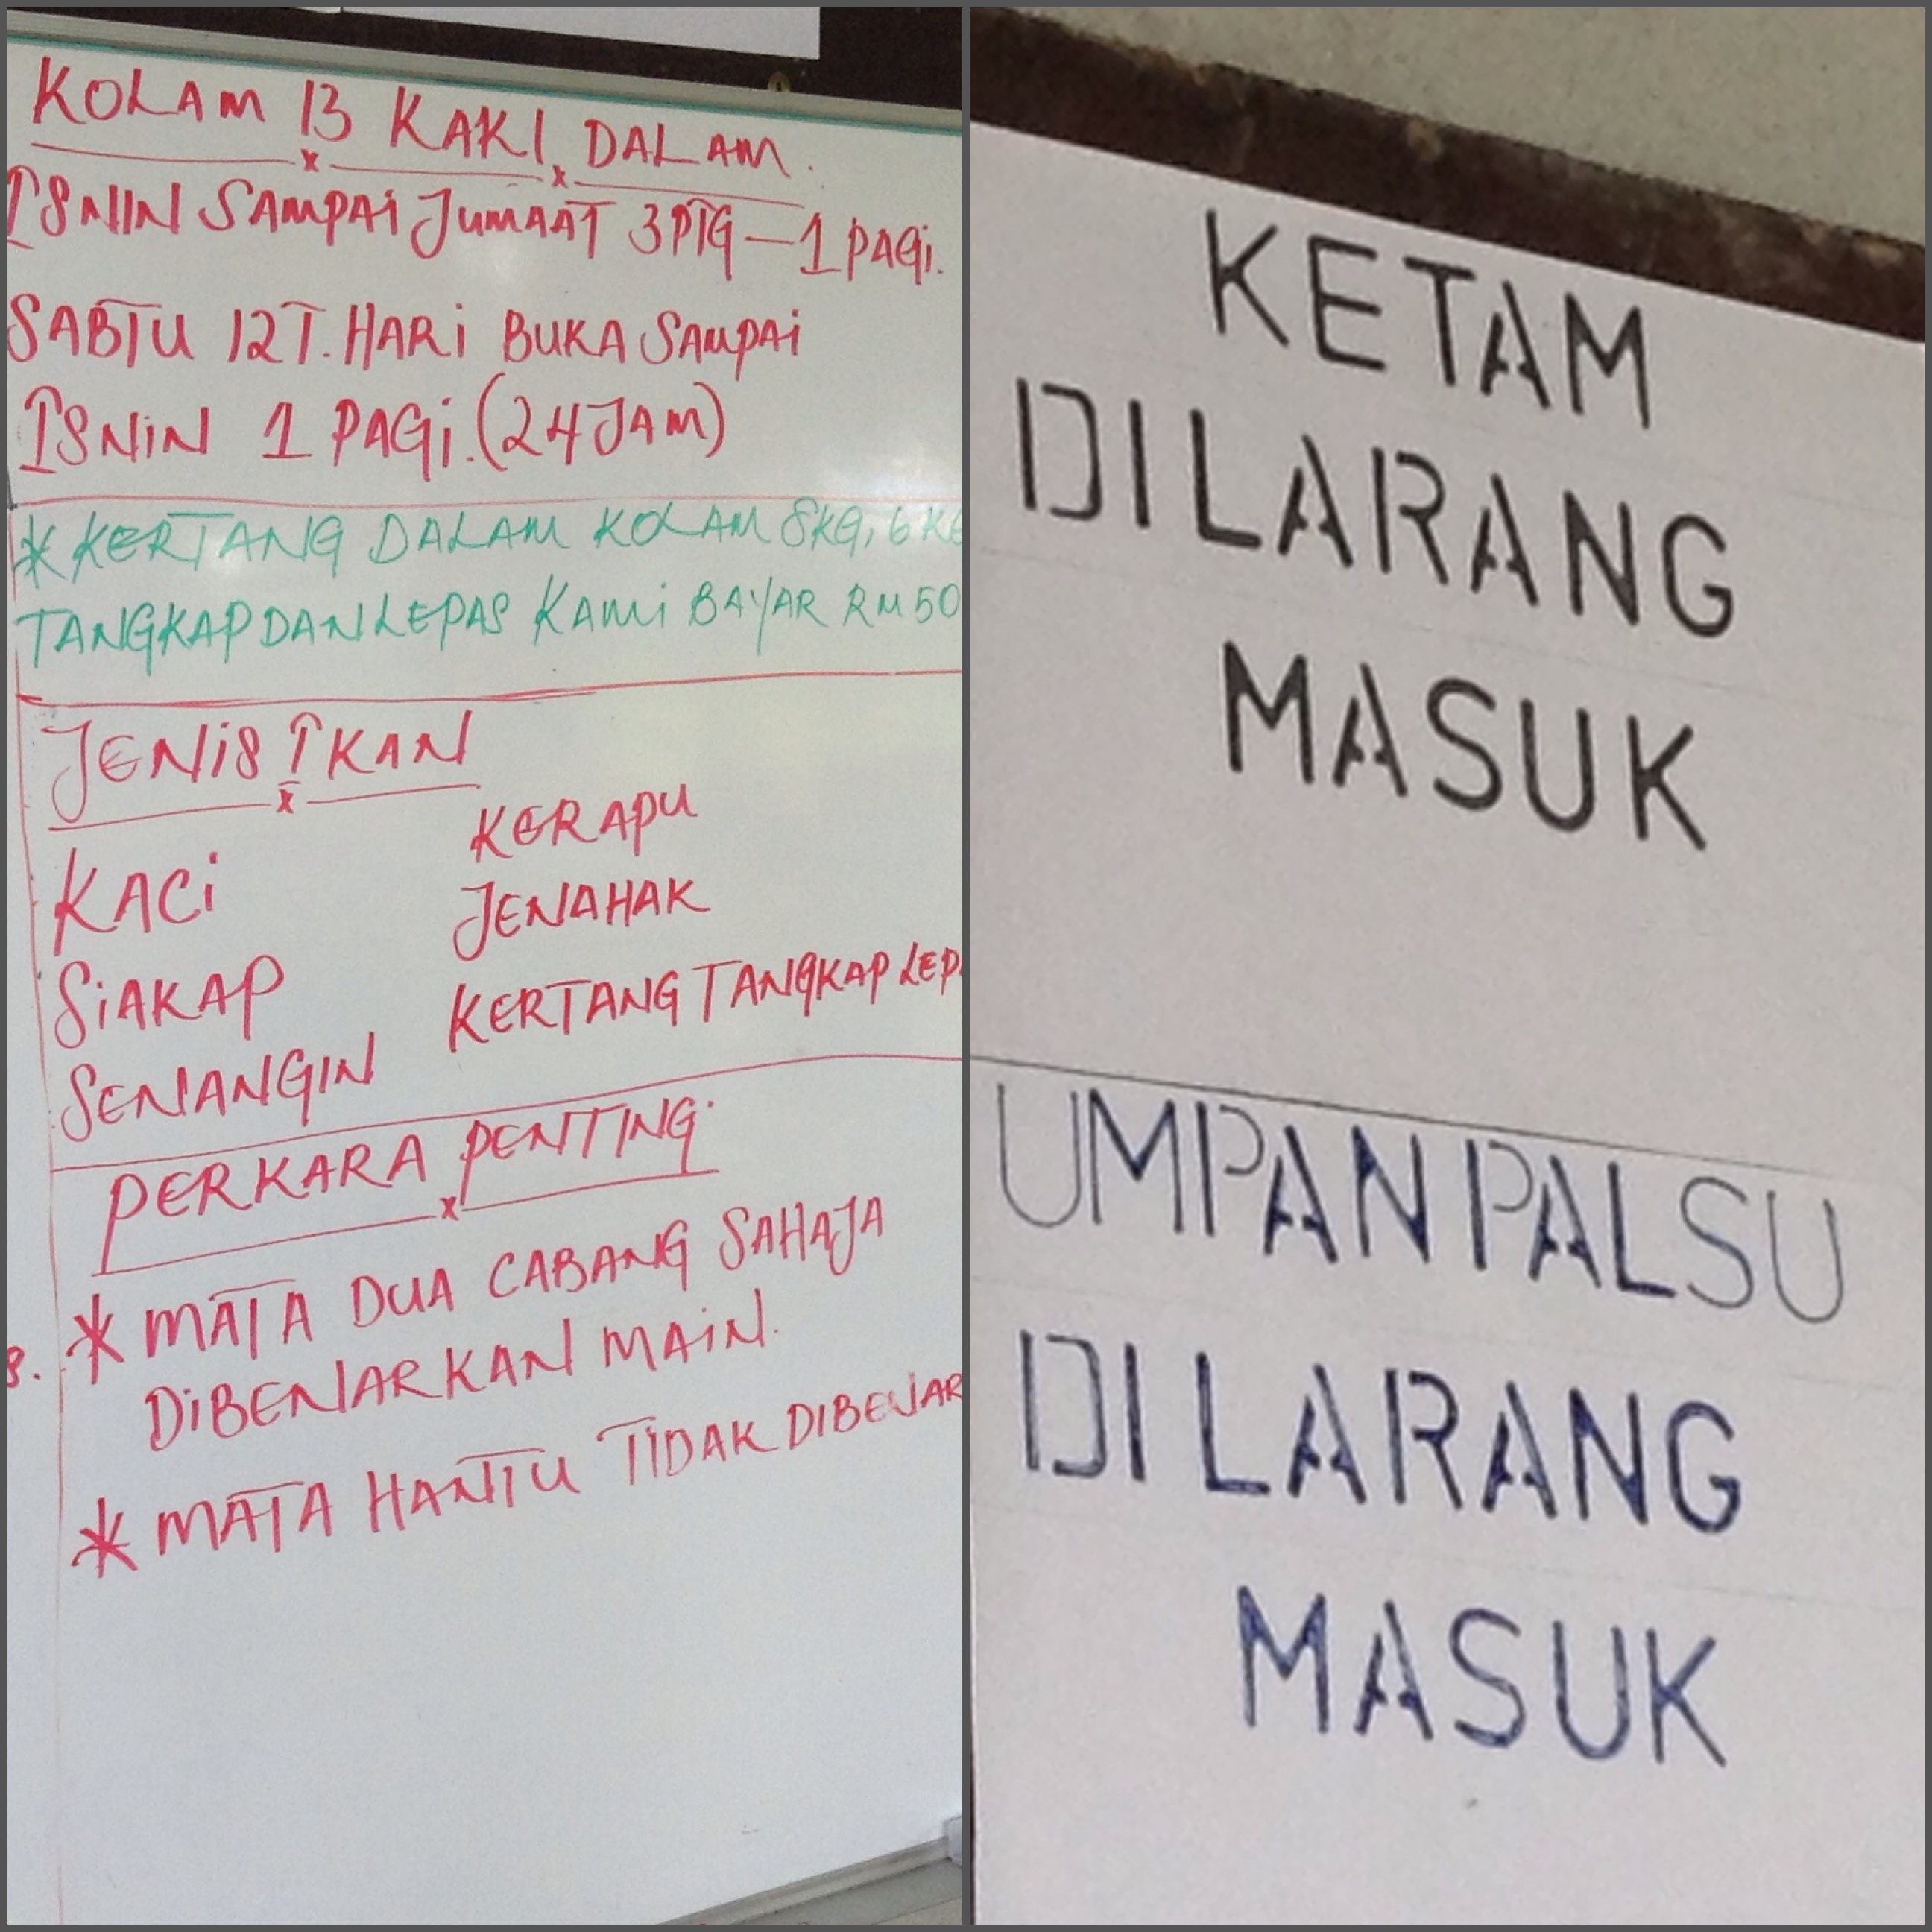 KOLAM 13 KAKI DALAM.
ISNIN SAMPAI JUMAAT 3PTG - 1 PAGI.
SABTU 12T.HARI BUKA SAMPAI
ISNIN 1 PAGI. (24 JAM)
* KERTANG DALAM KOLAM 8KG, 6 KG
TANGKAP DAN LEPAS KAMI BAYAR RM 50
JENIS IKAN
KACI
SIAKAP
SENANGIN
KERAPU
JENAHAK
KERTANG TANGKAP LEP
PERKARA PENTING.
* MATA DUA CABANG SAHAJA
DIBENARKAN MAIN.
* MATA HANTU TIDAK DIBENAR
KETAM
DILARANG
MASUK
UMPAN PALSU
DI LARANG
MASUK